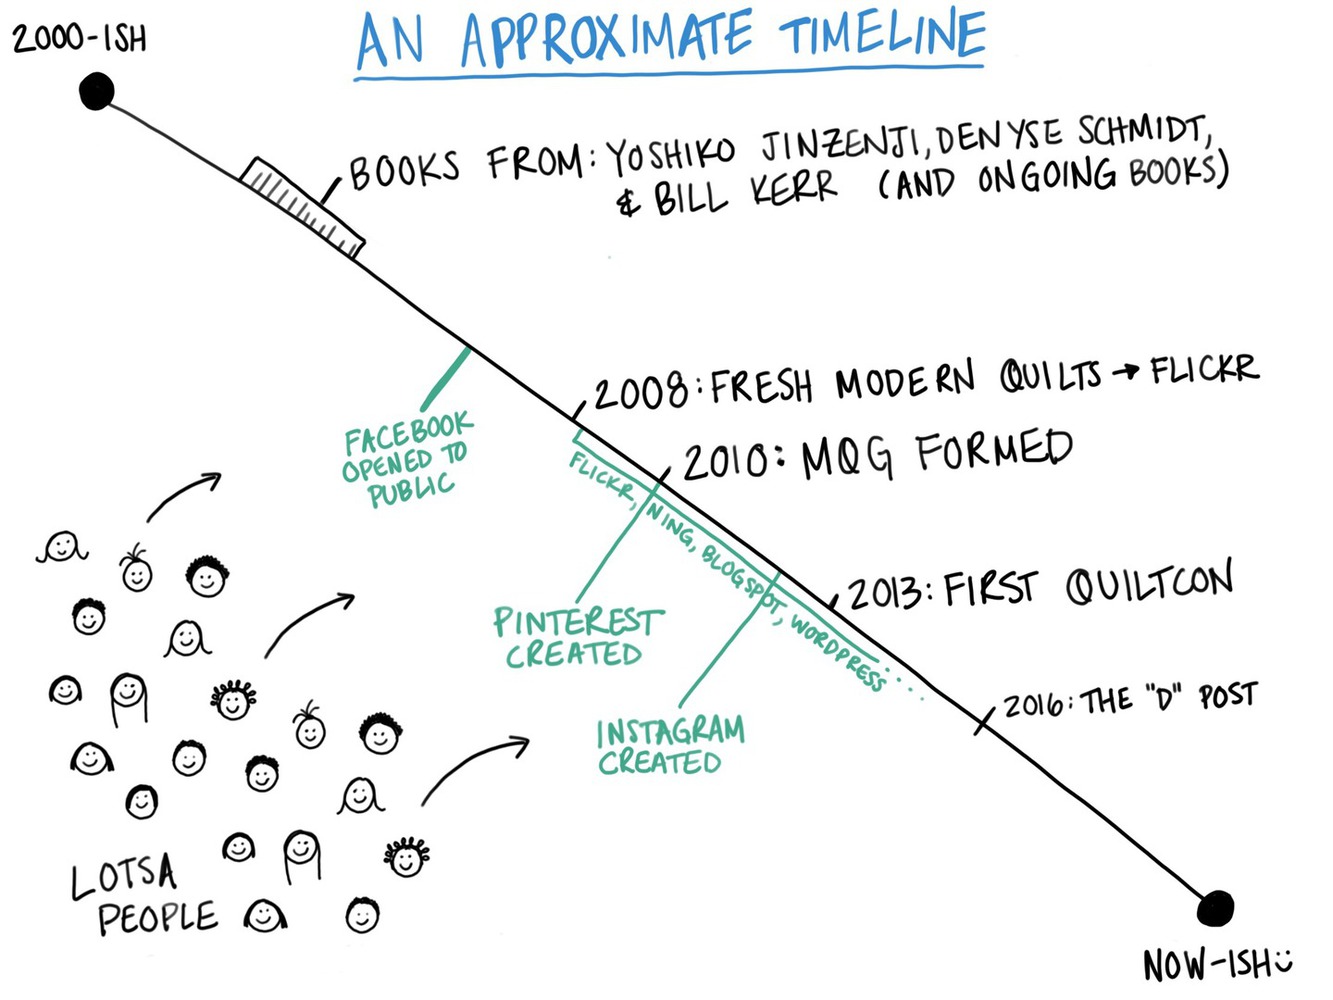 2000-ISH
AN APPROXIMATE TIMELINE
BOOKS FROM: YOSHIKO JINZENJI, DENYSE SCHMIDT,
& BILL KERR (AND ONGOING BOOKS)
FACEBOOK
OPENED TO
PUBLIC
2008: FRESH MODERN QUILTS → FLICKR
2010: MQG FORMED
FLICKR, NING, BLOGSPOT, WORDPRESS.....
PINTEREST
CREATED
2013: FIRST QUILTCON
INSTAGRAM
CREATED
2016: THE "D" POST
LOTSA
PEOPLE
NOW-ISH